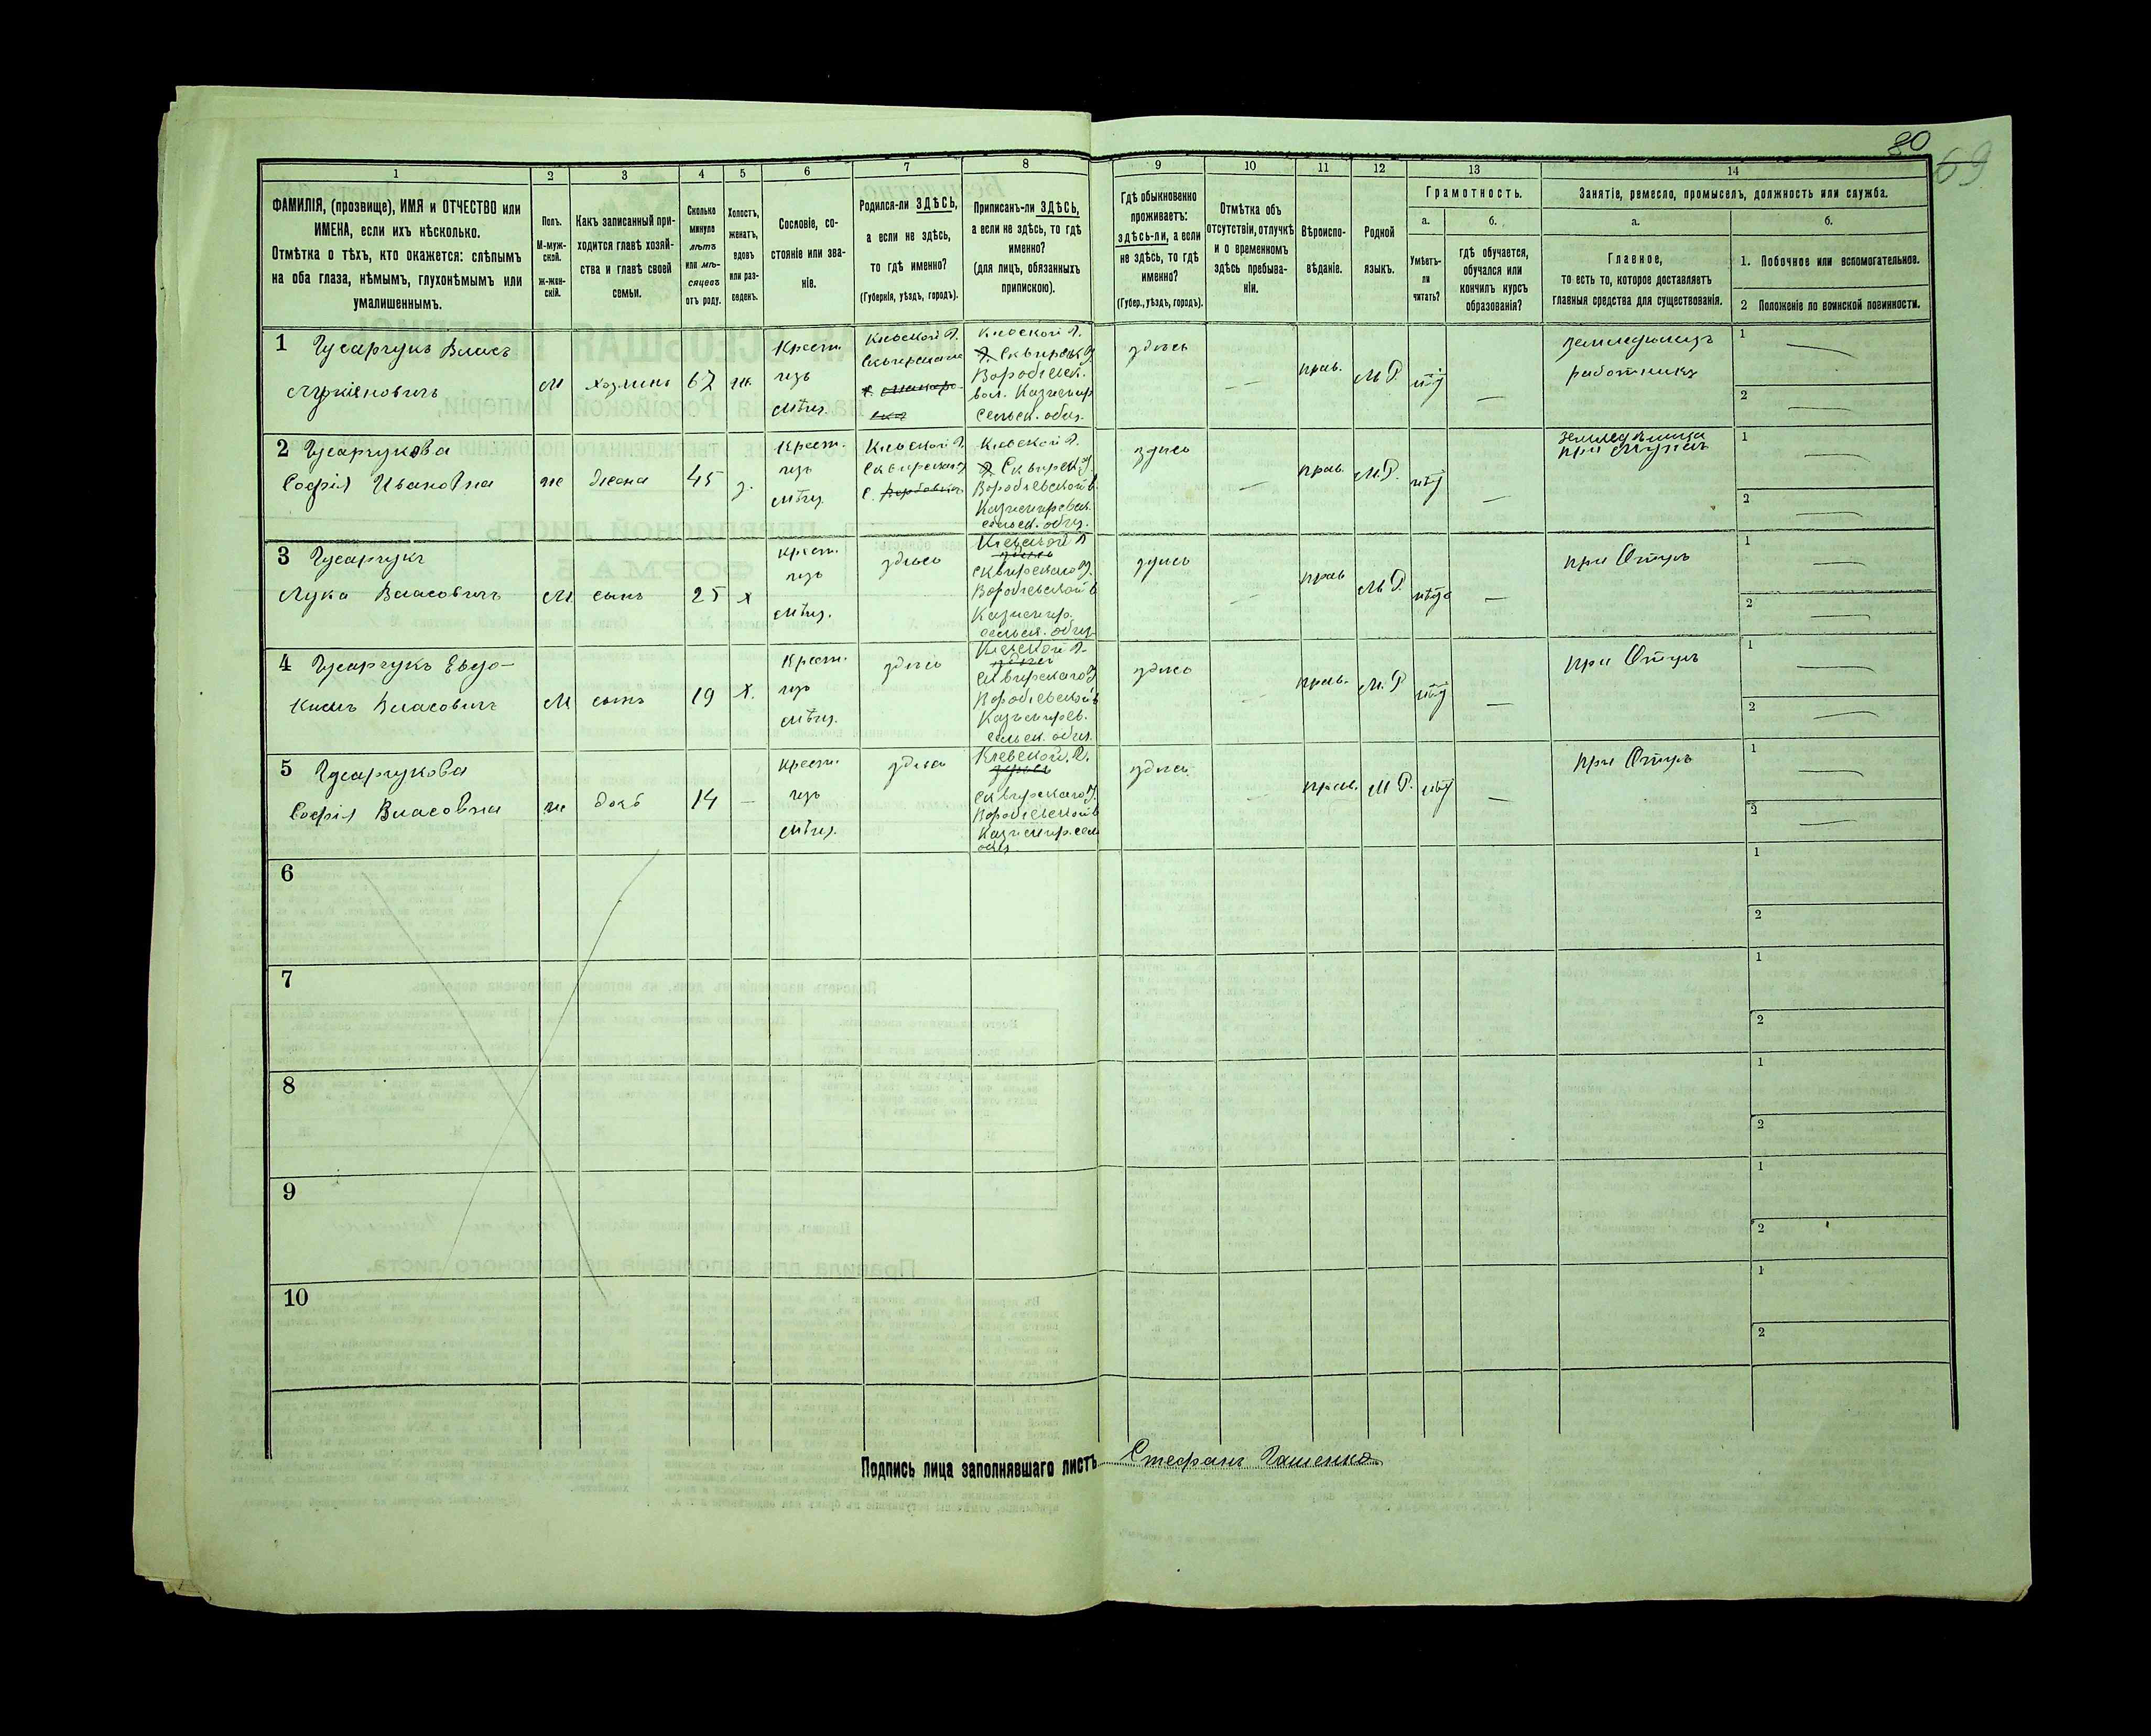 80
69
1
2
3
4
5
6
7
8
9
10
11
12
13
14
ФАМИЛІЯ, (прозвище), ИМЯ и ОТЧЕСТВО или
ИМЕНА, если ихъ нѣсколько.
Отмѣтка о тѣхъ, кто окажется: слѣпымъ
на оба глаза, нѣмымъ, глухонѣмымъ или
умалишеннымъ.
Полъ.
М-муж-
ской.
ж-жен-
скій.
Какъ записанный при-
ходится главѣ хозяй-
ства и главѣ своей
семьи.
Сколько
минуло
лѣтъ
или мѣ-
сяцевъ
отъ роду.
Холостъ,
женатъ,
вдовъ
или раз-
веденъ.
Сословіе, со-
стояніе или зва-
ніе.
Родился-ли ЗДѢСЬ,
а если не здѣсь,
то гдѣ именно?
(Губернія, уѣздъ, городъ).
Приписанъ-ли ЗДѢСЬ,
а если не здѣсь, то гдѣ
именно?
(для лицъ, обязанныхъ
припискою).
Гдѣ обыкновенно
проживаетъ:
здѣсь-ли, а если
не здѣсь, то гдѣ
именно?
(Губер., уѣздъ, городъ).
Отмѣтка объ
отсутствіи, отлучкѣ
и о временномъ
здѣсь пребыва-
ніи.
Вѣроиспо-
вѣданіе.
Родной
языкъ.
Грамотность.
а.
Умѣетъ-
ли
читать?
б.
гдѣ обучается,
обучался или
кончилъ курсъ
образованія?
Занятіе, ремесло, промыселъ, должность или служба.
а.
Главное,
то есть то, которое доставляетъ
главныя средства для существованія.
б.
1. Побочное или вспомогательное.
2 Положеніе по воинской повинности.
1 Гусарчукъ Власъ
Лукіяновичъ
М
хозяинъ
67
Крест.
изъ
мѣщ.
Кіевской Г.
Кіевской Г.
Сквирск У
Воробіевск.
вол. Казимир
сельск. общ.
здѣсь
—
прав.
М Р.
нѣт
—
земледѣлецъ
работникъ
1 —
2 —
2 Гусарчукова
Софія Ивановна
же
жена
45
з.
Крест.
изъ
мѣщ.
Кіевской Г.
Сквирскаго
с.
Кіевской Г.
Сквирск У.
Воробіевской в.
Казимировск.
сельск. общ.
здѣсь
—
прав.
М. Р.
нѣт
—
при Мужѣ
1 —
2 —
3 Гусарчукъ
Лука Власовичъ
М
сынъ
25
х
крест.
изъ
мѣщ.
здѣсь
Кіевской Г
здѣсь
Сквирскаго У.
Воробіевской в
Казимир.
сельск. общ.
здѣсь
—
прав
М Р.
—
при Отцѣ
1 —
2 —
4 Гусарчукъ Евдо-
кимъ Власовичъ
М
сынъ
19
х.
Крест.
изъ
мѣщ.
здѣсь
Кіевской Г.
здѣсь
Сквирскаго У
Воробіевской в
Казимиров.
сельск. общ.
здѣсь
—
прав.
М. Р
нѣт
—
при Отцѣ
1 —
2 —
5 Гусарчукова
Софія Власовна
же
дочь
14
—
крест.
изъ
мѣщ.
здѣсь
Кіевской. Г.
здѣсь
Сквирскаго У.
Воробіевской в
Казимир. сел
общ
здѣсь
—
прав.
М Р.
нѣт
—
при Отцѣ
1 —
2 —
6
1
2
7
1
2
8
1
2
9
1
2
10
1
2
Подпись лица заполнявшаго листъ Стефанъ